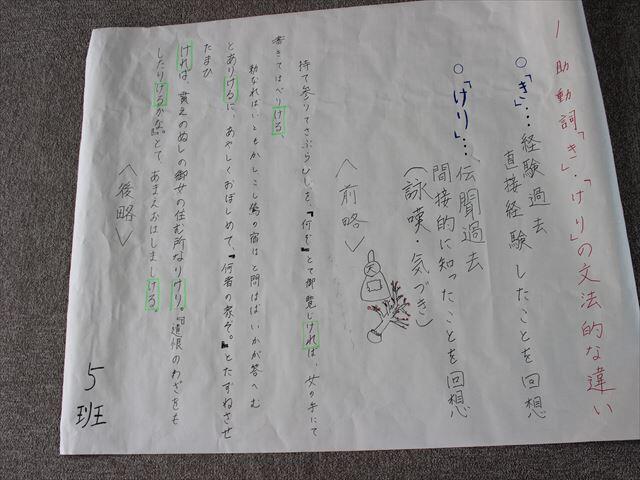 1 助動詞「き」・「けり」の文法的な違い
○「き」…経験過去
直接経験したことを回想
○「けり」…伝聞過去
間接的に知ったことを回想
(詠嘆・気づき)
〈前略〉
持て参りてさぶらひしを、『何ぞ』とて御覧じければ、女の手にて
書きてはべりける、
勅なればいともかしこし鶯の宿はと問はばいかが答へむ
とありけるに、あやしくおぼしめて、『何者の家ぞ。』とたずねさせ
たまひ
ければ、貫之のぬしの御女の住む所なりけり。『遺恨のわざをも
したりけるかな』とて、あまえおはしましける。
〈後略〉
5班